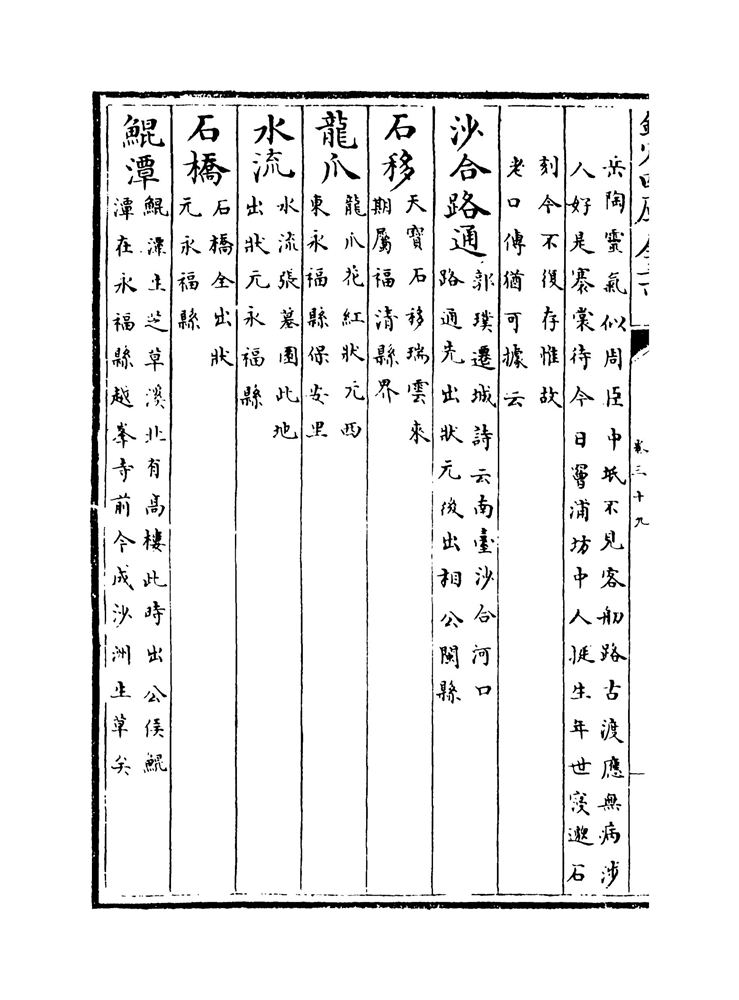 欽定四庫全書
卷三十九
岳陶靈氣似周臣中坻不見客舠路古渡應無病涉
人好是褰裳待今日畱浦坊中人挻生年世寖邈石
刻今不復存惟故
老口傳猶可據云
沙合路通郭璞遷城詩云南臺沙合河口
路通先出狀元後出相公閩縣
石移天寶石移瑞雲來
期屬福清縣界
龍爪龍爪花紅狀元西
東永福縣保安里
水流水流張墓園此地
出狀元永福縣
石橋石橋全出狀
元永福縣
鯤潭鯤潭生芝草溪北有高樓此時出公侯鯤
潭在永福縣越峯寺前今成沙洲生草矣